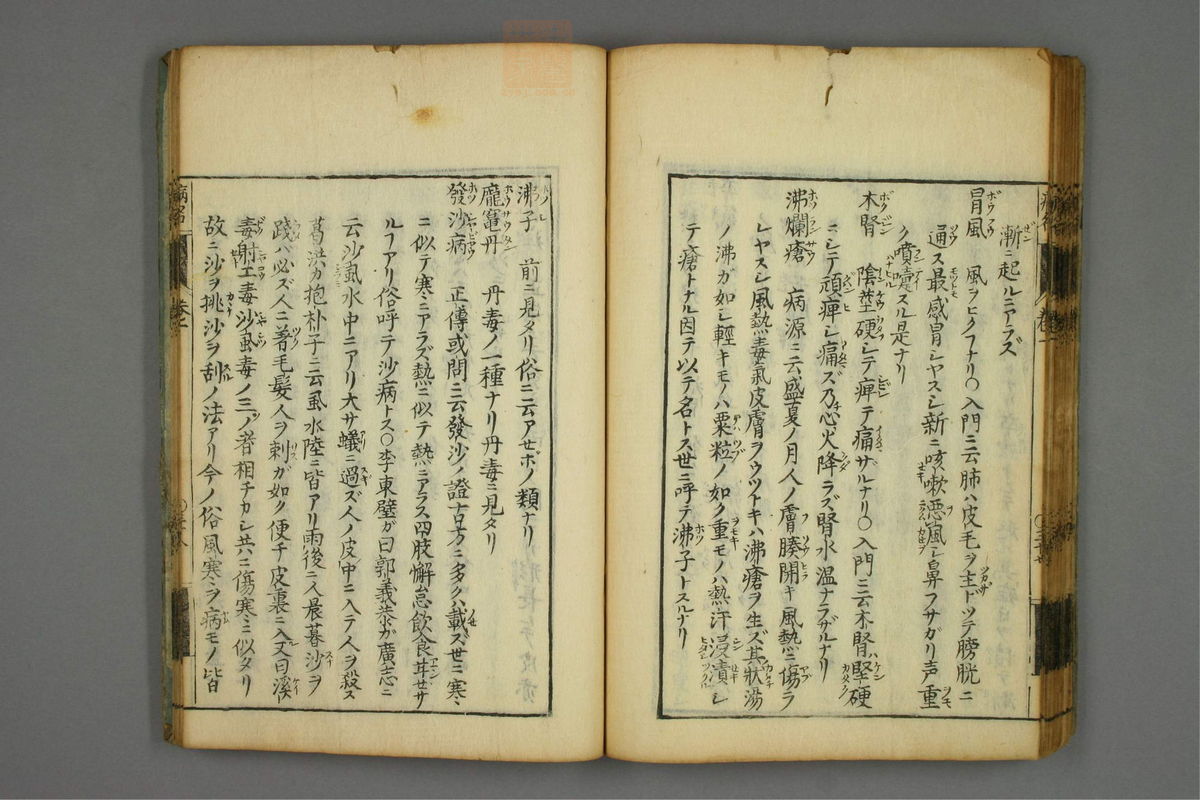 漸ニ起ルニアラズ
冒風 風ヲヒクフナリ〇入門ニ云肺ハ皮毛ヲ主ドツテ膀胱ニ
通ス最感冒シヤスシ新ニ咳嗽悪風シ鼻フサガリ声重
ク噴嚔スル是ナリ
木腎 陰莖硬シテ痺テ痛サルナリ〇入門ニ云木腎ハ堅硬
ニシテ頑痺シ痛ズ乃心火降ラズ腎水温ナラザルナリ
沸爛瘡 病源ニ云盛夏ノ月人ノ膚腠開キ風熱ニ傷ラ
レヤスシ風熱毒氣皮膚ヲウツトキハ沸瘡ヲ生ズ其状湯
ノ沸ガ如シ軽キモノハ粟粒ノ如ク重モノハ熱汗浸漬シ
テ瘡トナル因テ以テ名トス世ニ呼テ沸子トスルナリ
沸子 前ニ見タリ俗ニ云アせボノ類ナリ
龐竃丹 丹毒ノ一種ナリ丹毒ニ見タリ
發沙病 正傳或問ニ云發沙ノ證古方ニ多クハ載ス世ニ寒
ニ似テ寒ニアラズ熱ニ似テ熱ニアラス四肢懈怠飲食甘せサ
ルフアリ俗呼テ沙病トス〇李東壁ガ曰郭義恭ガ廣志ニ
云沙虱水中ニアリ大サ蟻ニ過ズ人ノ皮中ニ入テ人ヲ殺ス
葛洪カ抱朴子ニ云虱水陸ニ皆アリ雨後ニ人晨暮沙ヲ
踐ハ必ズ人ニ著毛髪人ヲ刺ガ如ク便チ皮裏ニ入又曰溪
毒射工毒沙虱毒ノ三ツノ者相チカシ共ニ傷寒ニ似タリ
故ニ沙ヲ挑沙ヲ刮ノ法アリ今ノ俗風寒ヲ病モノ皆